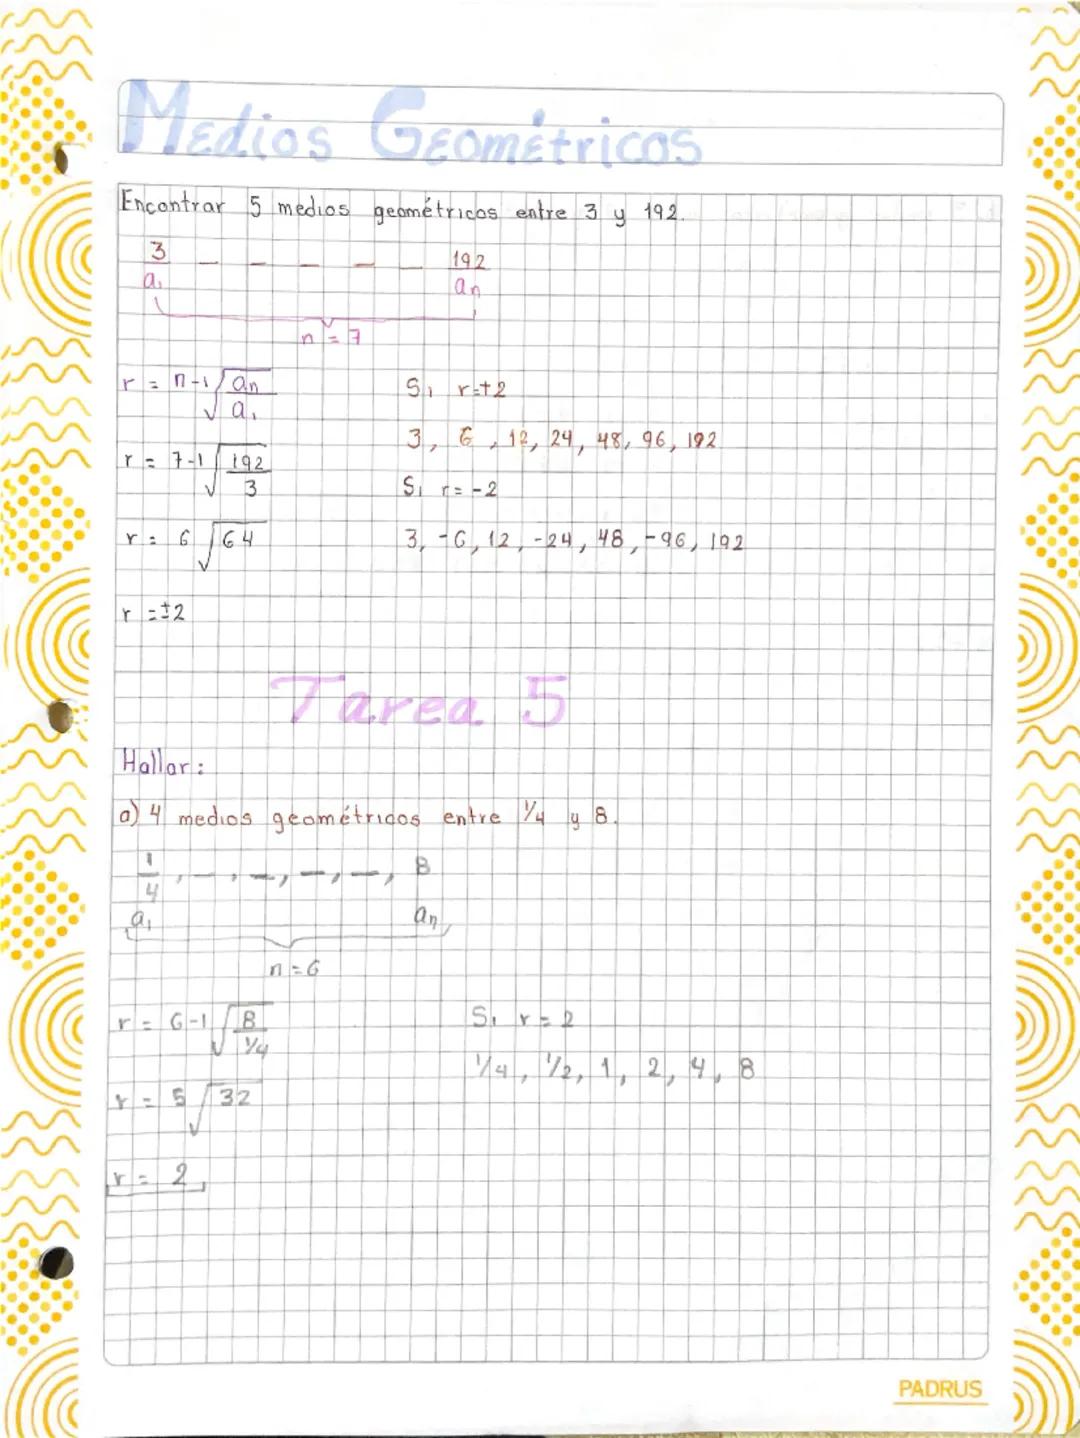 Medios Geométricos
Encontrar 5 medios geométricos entre 3 y 192.
3 _ _ _ _ _ 192
a₁ aₙ
n = 7
r = ⁿ⁻¹√(aₙ/a₁)
Si r=+2
3, 6, 12, 24, 48, 96, 192
r = ⁷⁻¹√(192/3)
Si r= -2
r = ⁶√64
3, -6, 12, -24, 48, -96, 192
r = ±2
Tarea 5
Hallar:
a) 4 medios geométricos entre 1/4 y 8.
1/4, _, _, _, _, 8
a₁ aₙ
n = 6
r = ⁶⁻¹√(8/1/4)
Si r = 2
1/4, 1/2, 1, 2, 4, 8
r = ⁵√32
r = 2
PADRUS